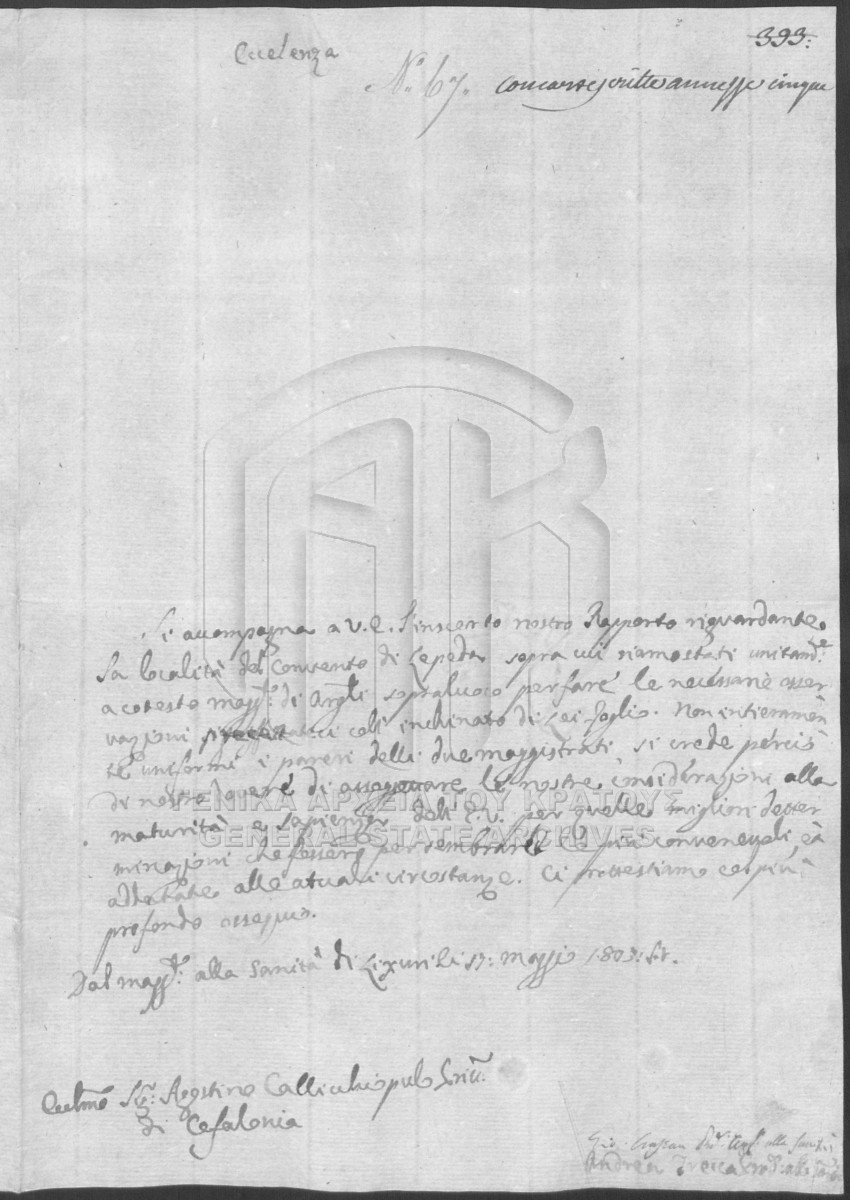 393:
Eccelenza
N.º 67. con carte scritte annesse cinque
Si accompagna a V.E. l'inserto nostro Rapporto riguardante
la località del Convento di Lepeda sopra cui siamo stati unitamᵗᵉ
a cotesto maggᵗᵒ: di Argˡⁱ sopraluoco per fare le necessarie osser
vazioni colì inchinato di lei foglio. Non intieramen
te uniformi i pareri delli due maggistrati si crede perciò
di nostro dovere di assoggettare le nostre considerazioni alla
maturità e sapienza dell'E.V. per quelle migliori deter
minazioni che fossero per sembrarle le più convenevoli, ed
addattate alle atuali circostanze. Ci protestiamo col più
profondo ossequio.
Dal maggᵗᵒ: alla Sanità di Lixuri li 17: maggio 1803: S.V.
Eccelmo Sigʳ: Agostino Callichiopulo
di Cefalonia
Andrea alla
ΓΕΝΙΚΑ ΑΡΧΕΙΑ ΤΟΥ ΚΡΑΤΟΥΣ
GENERAL STATE ARCHIVES